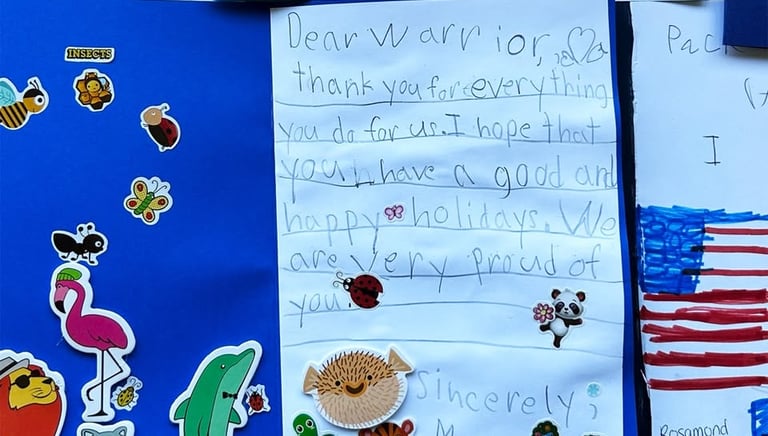 INSECTS
Dear Warrior,
thank you for everything
you do for us. I hope that
you have a good and
happy holidays. We
are very proud of
you.
Sincerely,
M
Pac
I
Rosamond